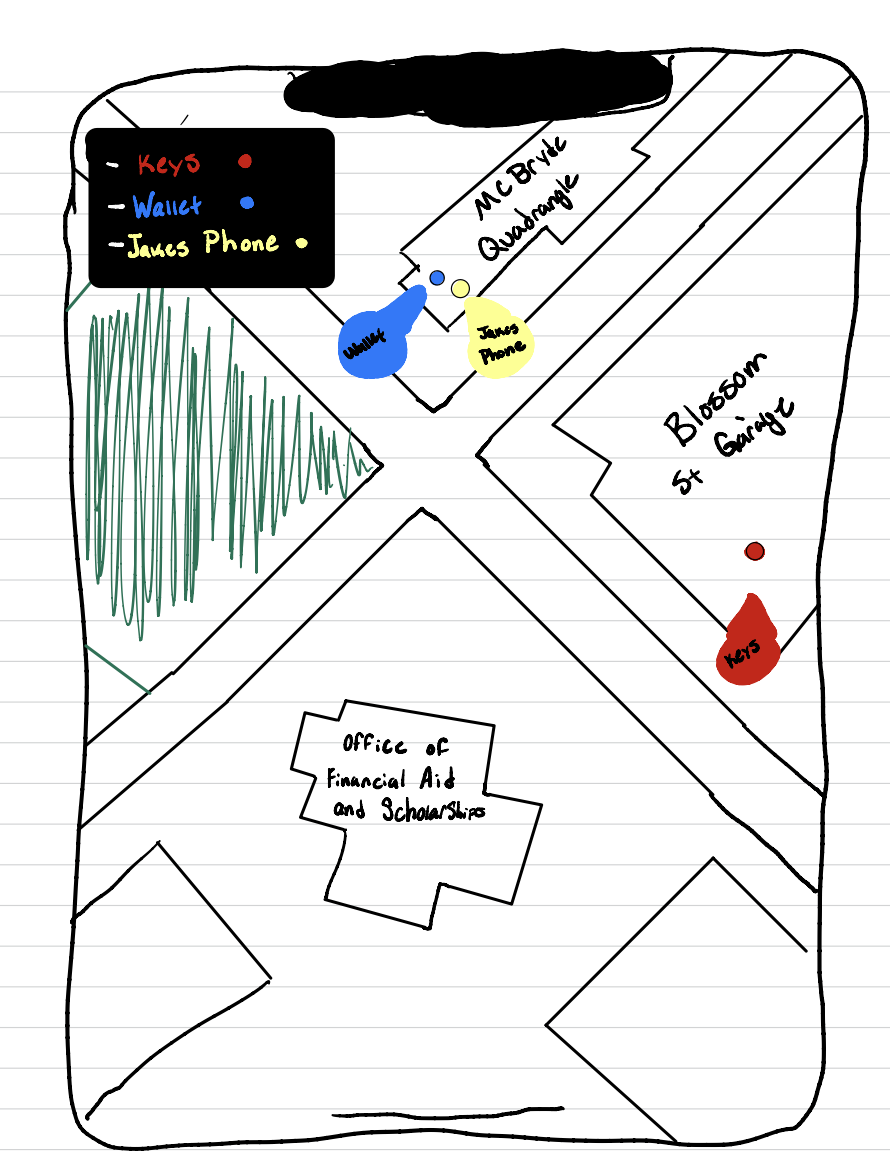 - Keys
- Wallet
- Jakes Phone
MCBryde
Quadrangle
Wallet
Jakes
Phone
Blossom
St Garage
Keys
Office of
Financial Aid
and Scholarships